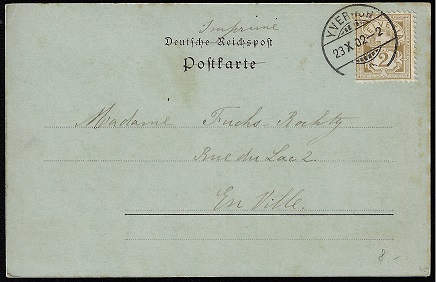 Imprimé
Deutsche Reichspost
Postkarte
YVERDON
23 X 02 - 2
HELVETIA
2
Madame Fuchs-
Rue du Lac 2.
En Ville.
8.-